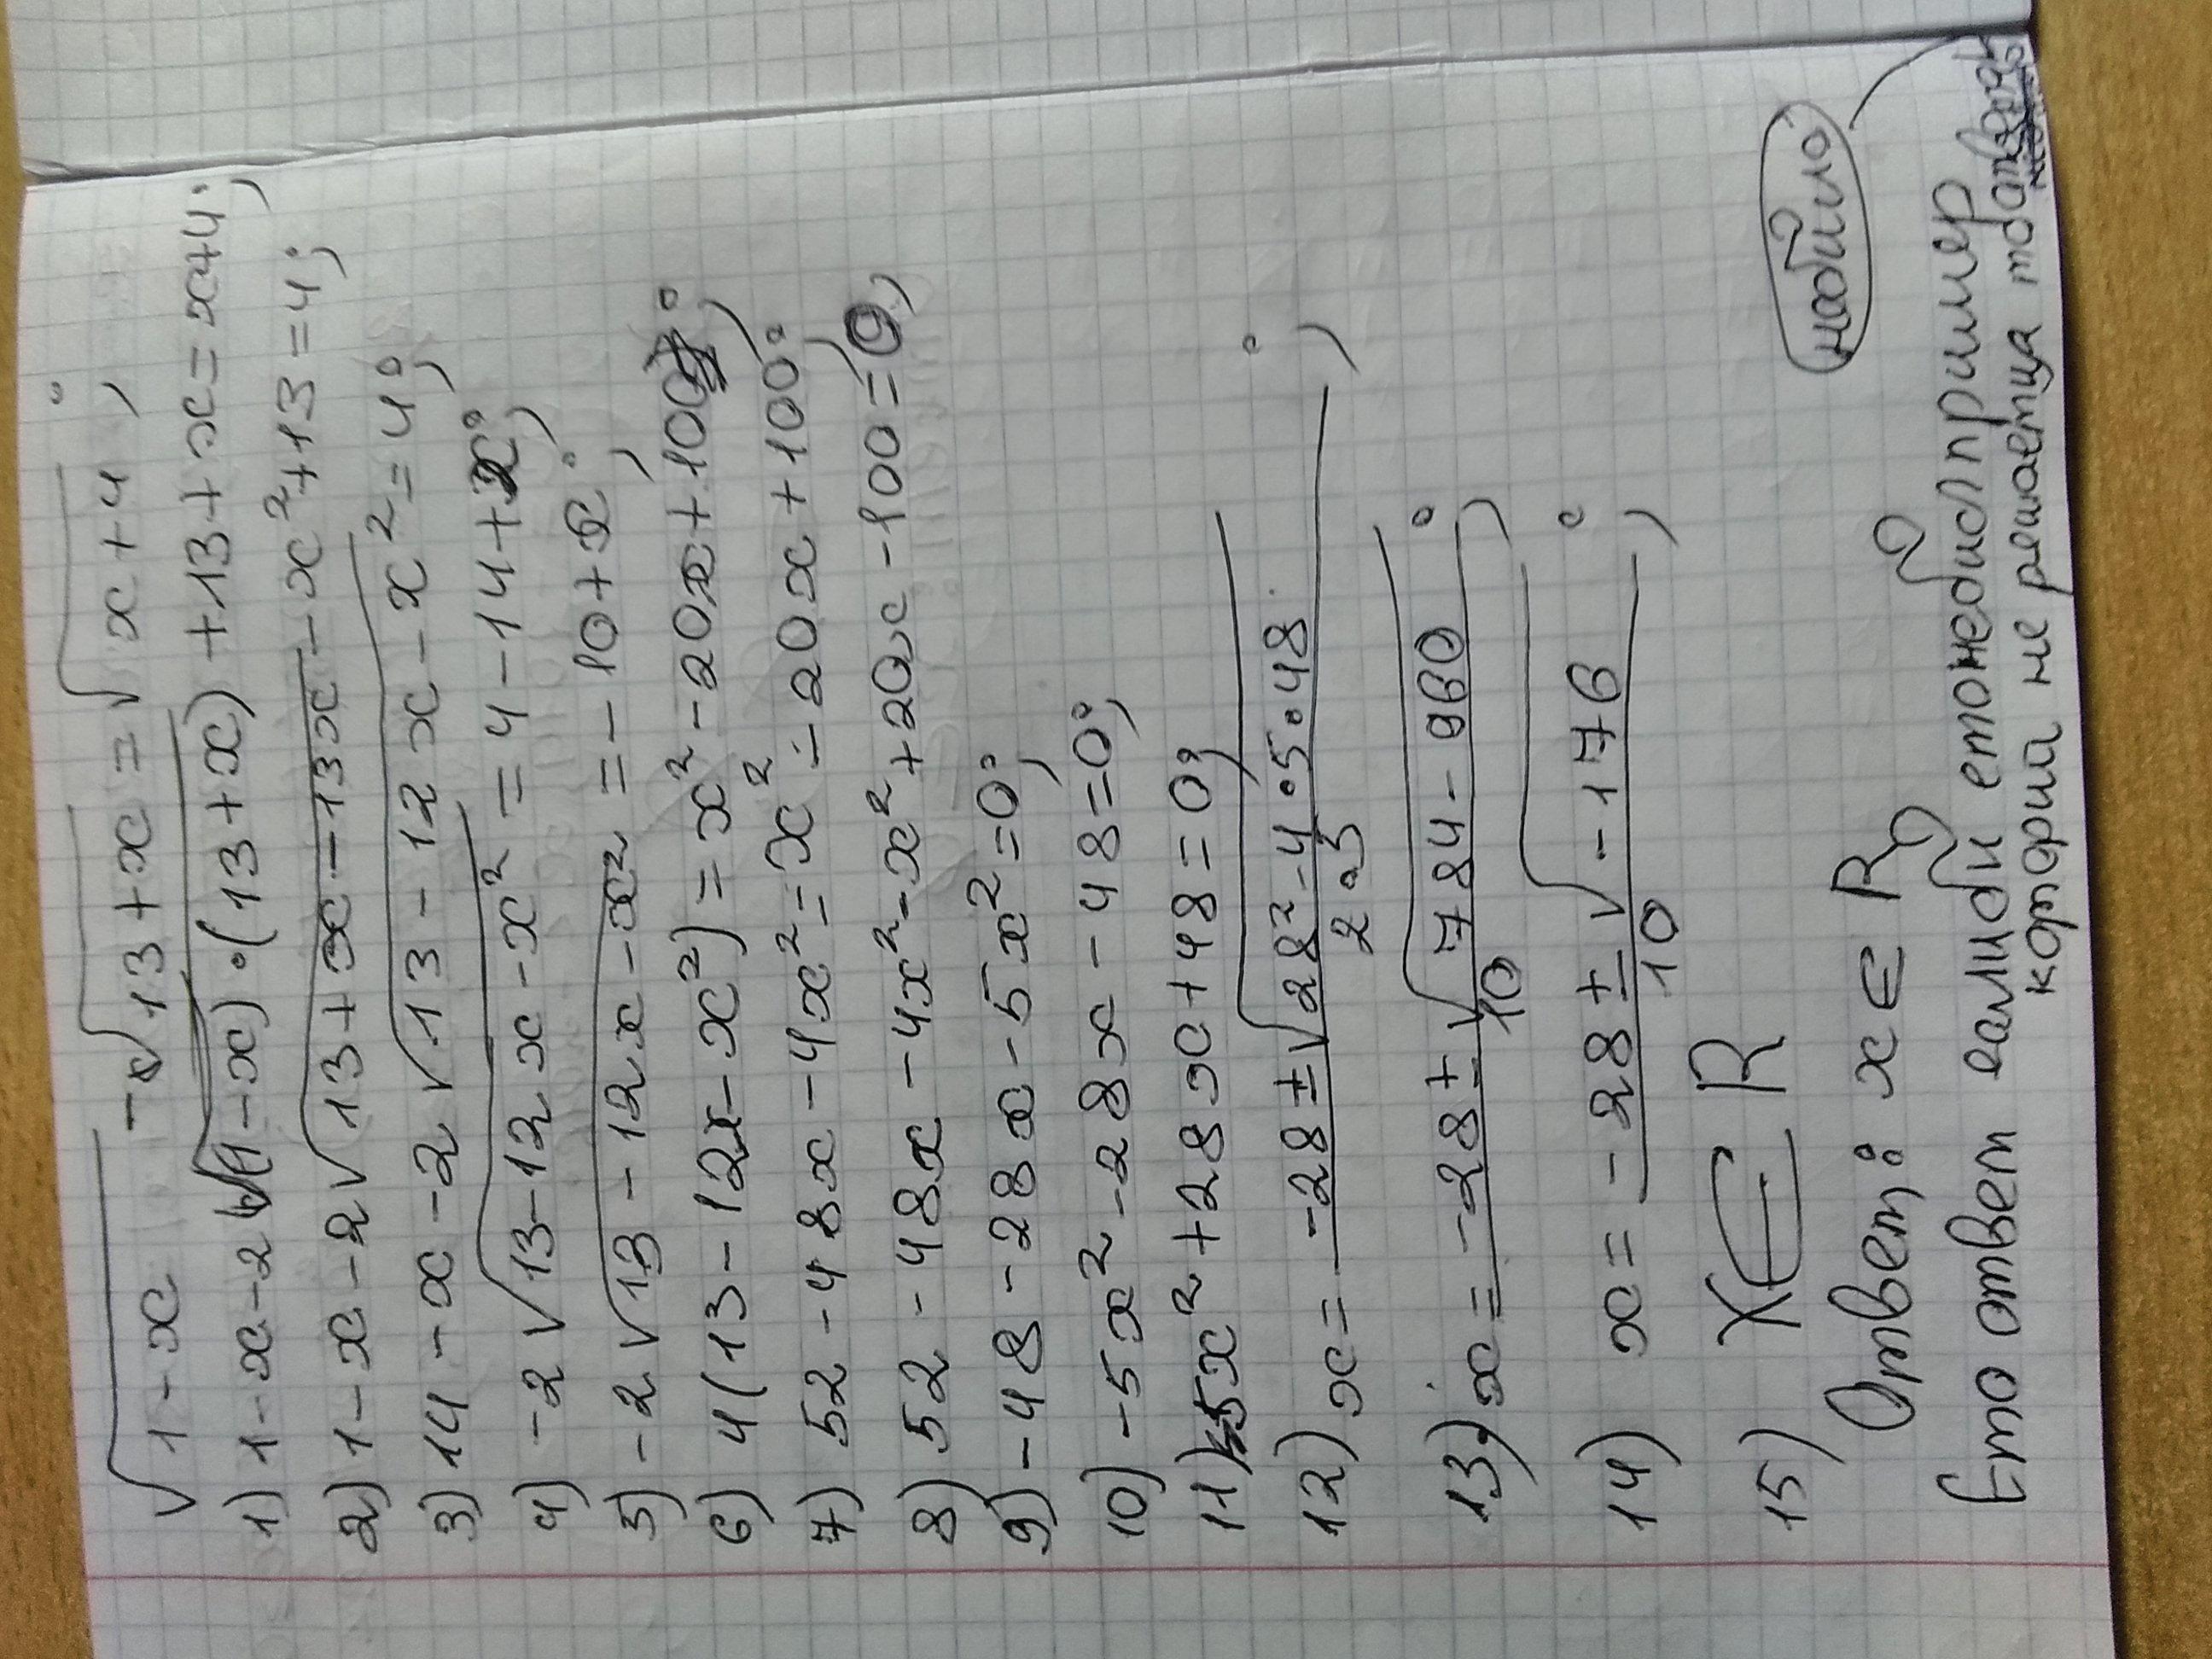 √1-x - √13+x = √x+4;
1) 1-x-2√(1-x)·(13+x) +13+x=x+4;
2) 1-x-2√13+x-13x-x²+13=4;
3) 14-x-2√13-12x-x²=4;
4) -2√13-12x-x²=4-14+x;
5) -2√13-12x-x²=-10+x;
6) 4(13-12x-x²)=x²-20x+100;
7) 52-48x-4x²=x²-20x+100;
8) 52-48x-4x²-x²+20x-100=0;
9) -48-28x-5x²=0;
10) -5x²-28x-48=0;
11) 5x²+28x+48=0;
12) x= -28±√28²-4·5·48 / 2·5;
13) x= -28±√784-960 / 10;
14) x= -28±√-176 / 10;
15) X∈R
Ответ: x∈R
Ето ответ еслиби етонебилпример
которий не решаетца
набило